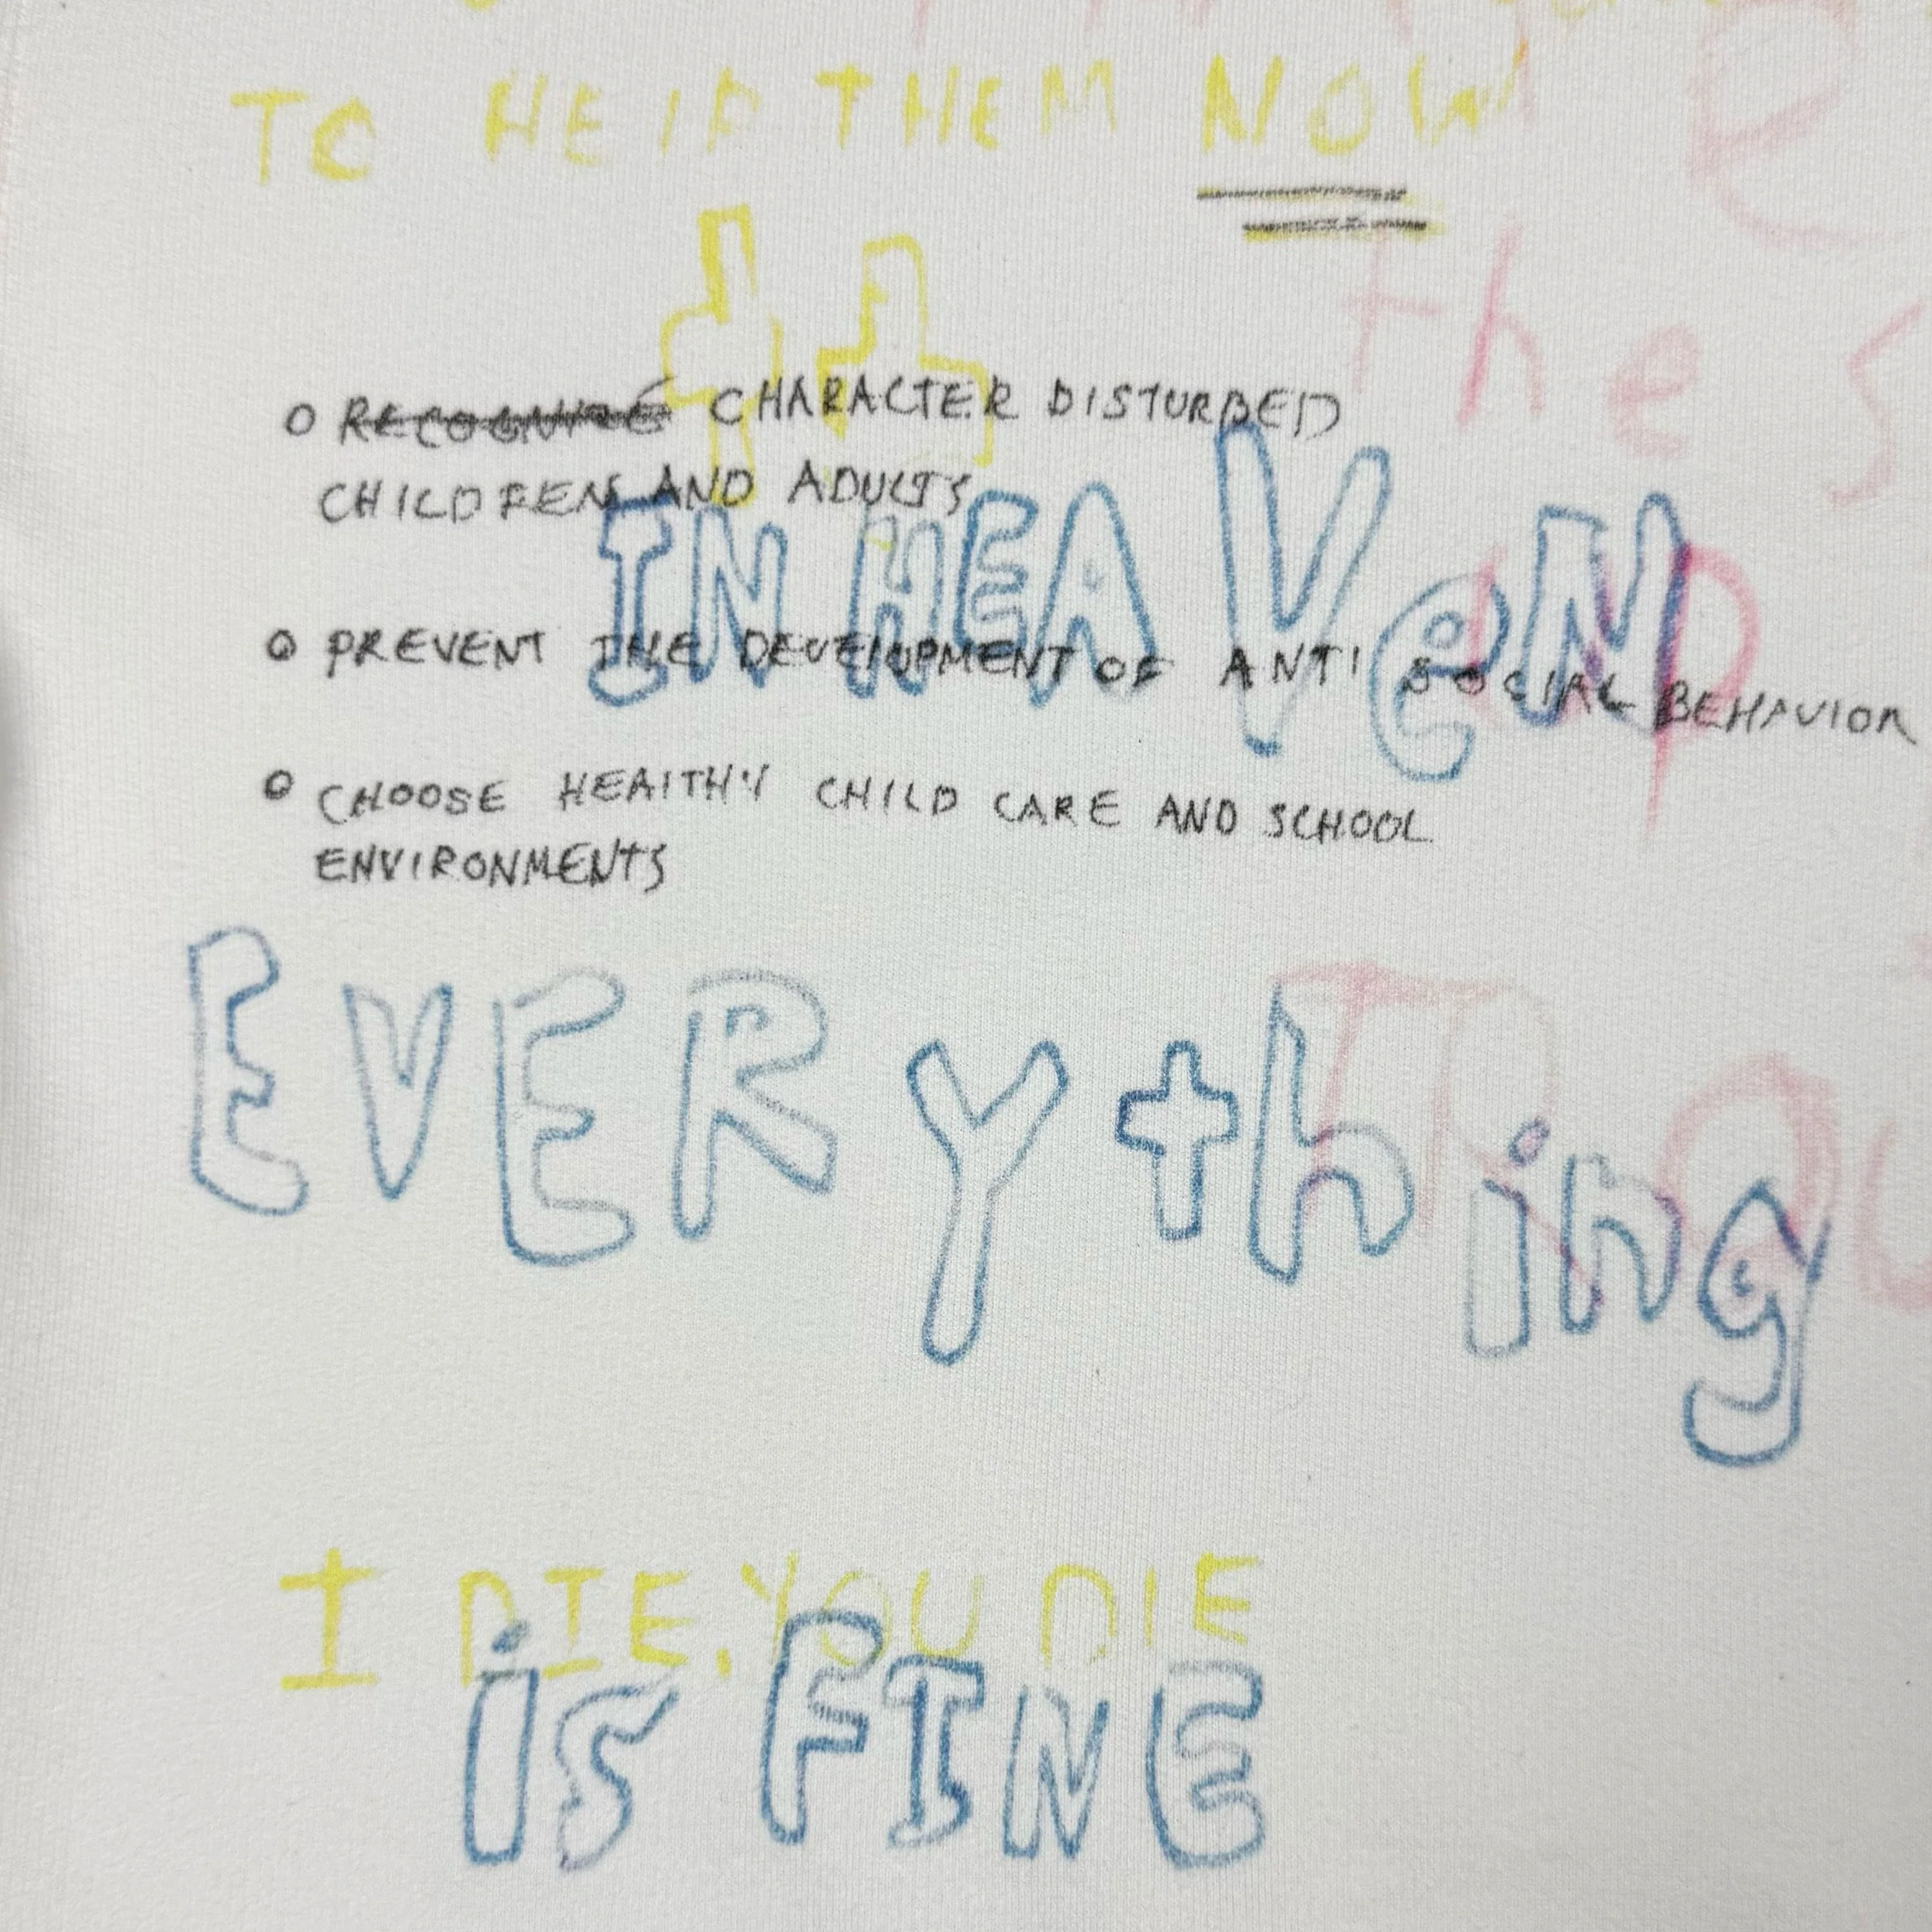 TO HElP THEM NOW
the S
RECOGNIZE CHARACTER DISTURBED
CHILDRENS AND ADULTS
IN HEAVeN
UP
PREVENT THE DEVElOPMENT OF ANTI SOCIAL BEHAVIOR
CHOOSE HEAlTHY CHILD CARE AND SCHOOL
ENVIRONMENTS
EVERything
I DIE, YOU DIE
is FINE